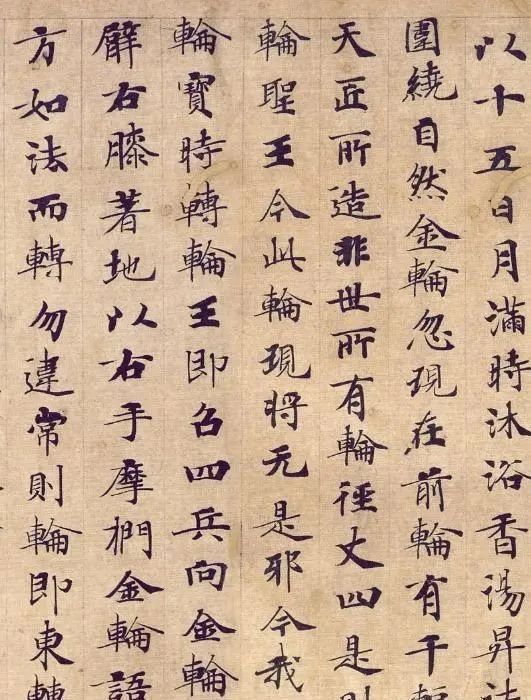 以十五日月滿時沐浴香湯昇
圍繞自然金輪忽現在前輪有千
天匠所造非世所有輪徑丈四是
輪聖王今此輪現將无是邪今我
輪寶時轉輪王即召四兵向金輪
臂右膝著地以右手摩捫金輪語
方如法而轉勿違常則輪即東轉